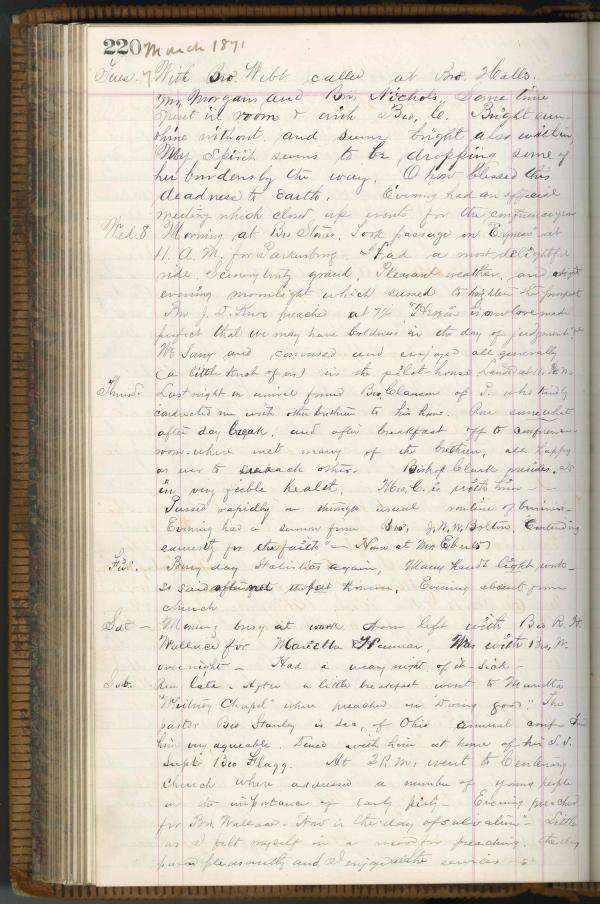 220 March 1871
Tues. 7 With Bro Webb called at Bro. Halls.
Mr Morgan, and Bro, Nichols. Some time
spent in room & with Bro, C. Bright sun-
shine without, and seems bright also within,
My Spirit seems to be dropping some of
her burdens by the way. O how blessed this
deadness to Earth. Evening had an official
meeting which closed up events for the conference year
Wed. 8 Morning at Bro Stones. Took passage on "Express" at
11. A. M. for Parkersburg. Had a most delightful
ride, Scenery truly grand, Pleasant weather, and a bright
evening moonlight which seemed to heighten the prospect
Bro J. D. preached at 7½ "Herein is our love made
perfect that we may have boldness in the day of judgment" &c
We Sang and conversed and enjoyed all generally
(a little knot of us) in the pilot-house Landed at
Thurs. Last night on arrival found Bro, Clauson of P. who kindly
conducted me with other brethren to his home. Rose somewhat
after day break, and after breakfast off to conference
room. where met many of the brethren, all happy
as ever to see each other. Bishop Clark presides. Is
in very feeble health, Mrs, C. is with him - -
Passed rapidly on through usual routine of business.
Evening had a sermon from Bro, J. N. W. Bolton, "Contending
earnestly for the faith" - Home at Mrs Eberts
Frid. Busy day Statistics again, Many hands light work -
so said after not the fact however, Evening absent from
church
Sat - Morning busy at work noon left with Bro R. H.
Wallace for Marietta Was with Bro, W.
over night - Had a weary night of it - sick -
Sab. Rose late. After a little breakfast went to Marietta
"Whitney Chapel" where preached on "doing good". The
pastor Bro Stanley is sec, of Ohio annual conf -
him very agreeable. Dined with him at home of his S. S.
Supt Bro Flagg. At 2 P.M. went to Centenary
church where addressed a number of young people
on the importance of early piety - Evening preached
for Bro, Wallace - "Now is the day of salvation" - Little
as I felt myself in a mood for preaching, the day
passed pleasantly and I enjoyed the services -